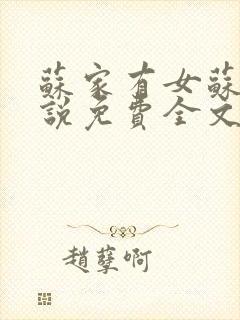 蘇家有女蘇
說免費全文
趙孽啊